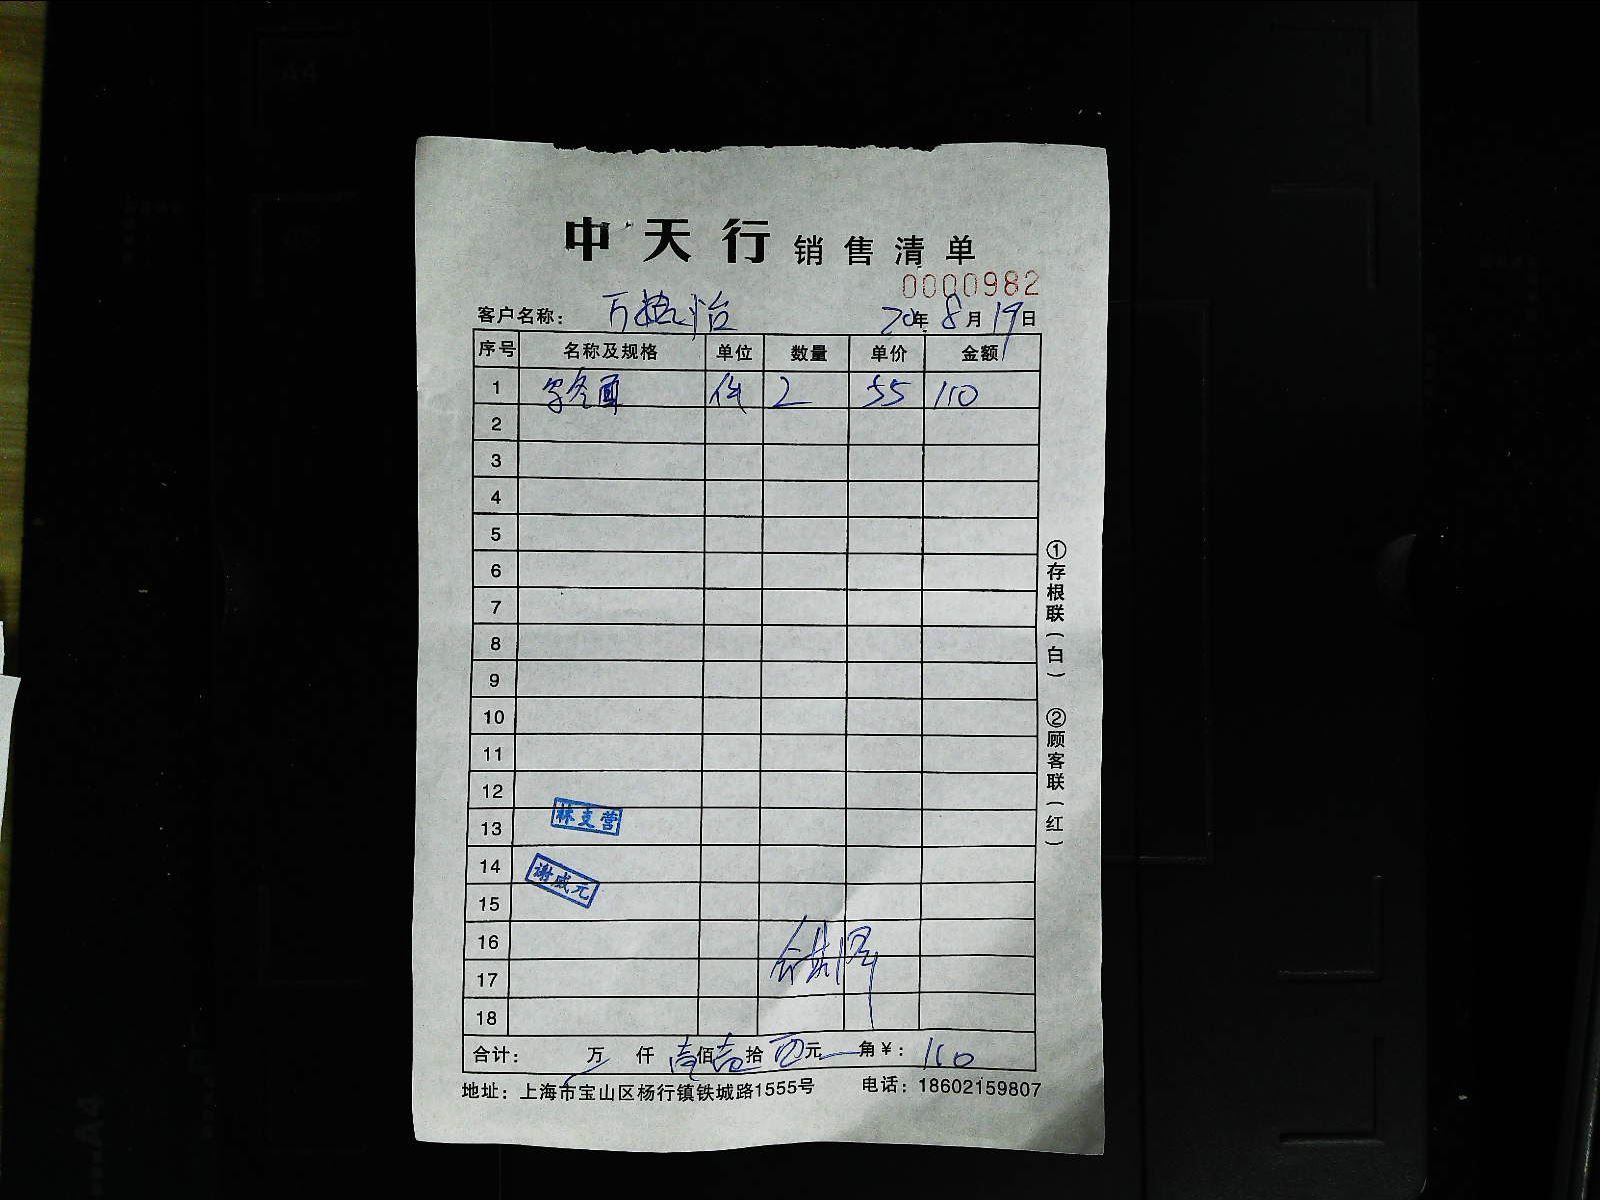 中天行 销售清单
0000982
客户名称： 20年 8月 19日
序号 名称及规格 单位 数量 单价 金额
1 件 2 55 110
2
3
4
5
6
7
8
9
10
11
12
林支营
13
14
谢成元
15
16
17
18
合计： 万 仟 壹佰壹拾 元 角￥： 110
地址：上海市宝山区杨行镇铁城路1555号 电话：18602159807
①存根联（白）
②顾客联（红）